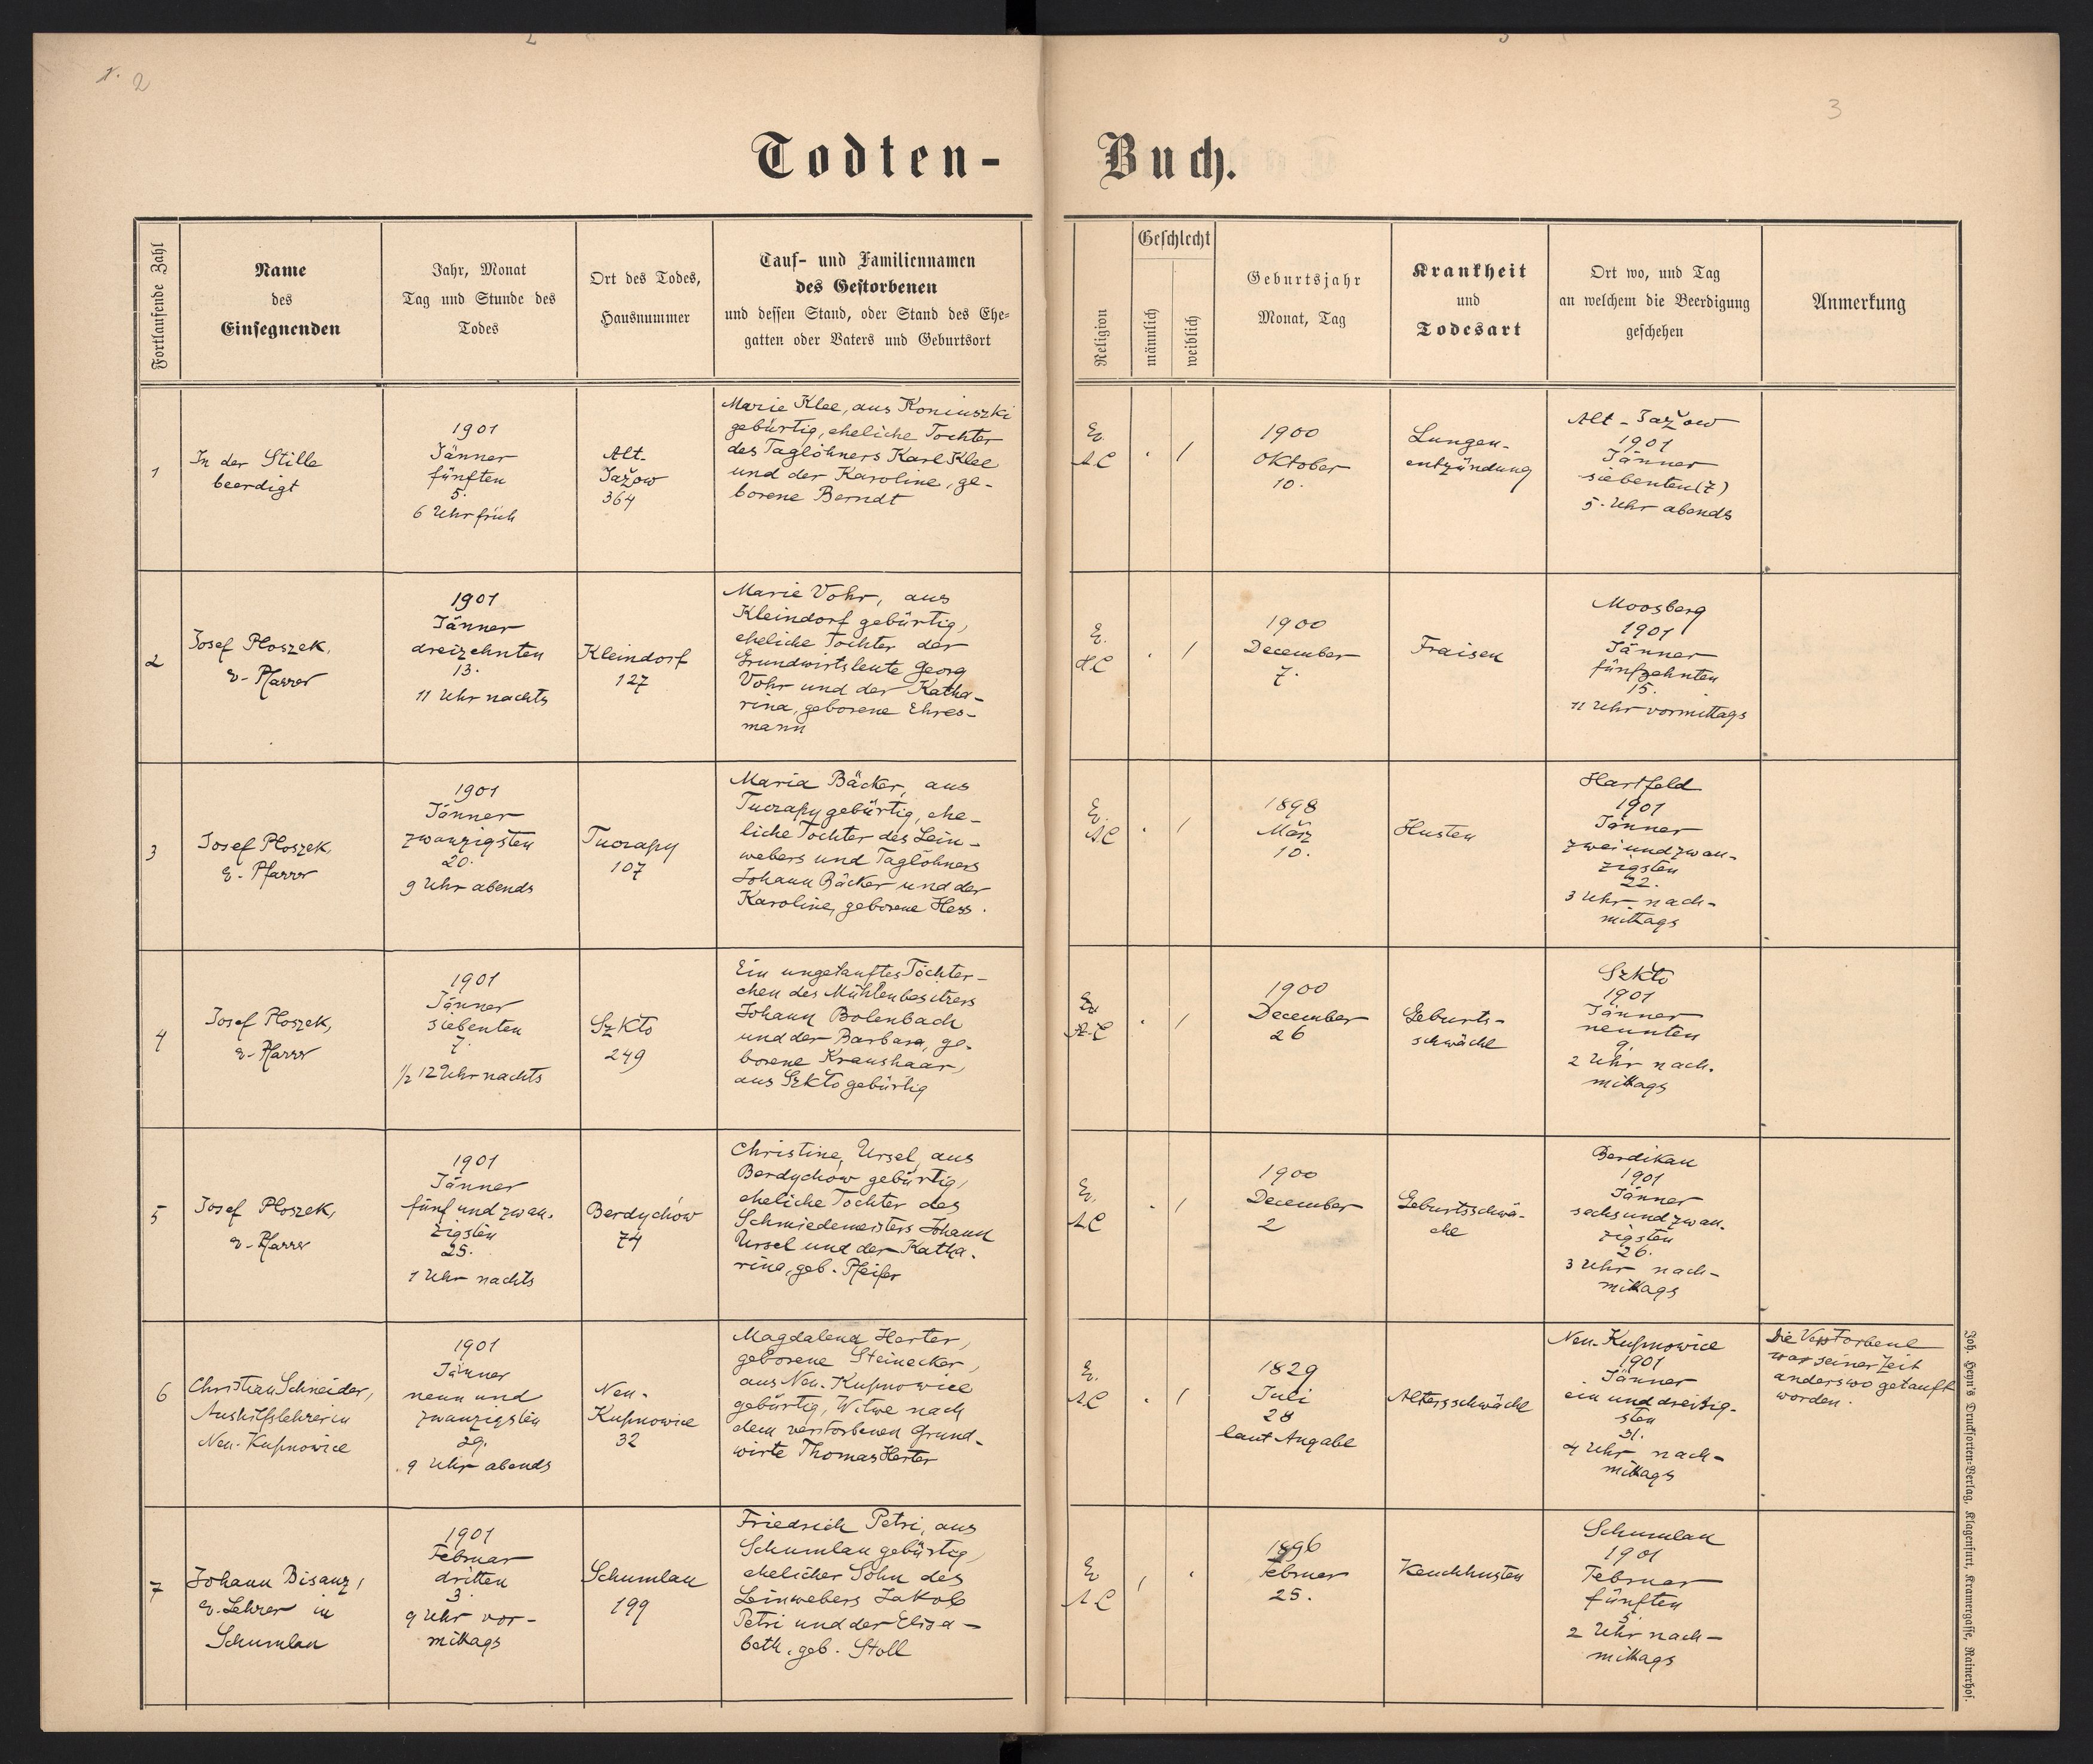 2
3
Todten-
Buch.
Fortlaufende Zahl
Name
des
Einsegnenden
Jahr, Monat
Tag und Stunde des
Todes
Ort des Todes,
Hausnummer
Tauf- und Familiennamen
des Gestorbenen
und dessen Stand, oder Stand des Ehe-
gatten oder Vaters und Geburtsort
Religion
Geschlecht
männlich
weiblich
Geburtsjahr
Monat, Tag
Krankheit
und
Todesart
Ort wo, und Tag
an welchem die Beerdigung
geschehen
Anmerkung
1
In der Stille
beerdigt
1901
Jänner
fünften
5.
6 Uhr früh
Alt-
Jažow
364
Marie Klee, aus Koniuszki
gebürtig, eheliche Tochter
des Taglöhners Karl Klee
und der Karoline, ge-
borene Berndt
Ev.
A.C
1900
Oktober
10.
Lungen-
entzündung
Alt-Jažow
1901
Jänner
siebenten (7)
5. Uhr abends
2
Josef Ploszek,
ev. Pfarrer
1901
Jänner
dreizehnten
13.
11 Uhr nachts
Kleindorf
127
Marie Vohr, aus
Kleindorf gebürtig,
eheliche Tochter der
Grundwirtsleute Georg
Vohr und der Katha-
rina, geborene Ehres-
mann
Ev.
H.C
1900
December
7.
Fraisen
Moosberg
1901
Jänner
fünfzehnten
15.
11 Uhr vormittags
3
Josef Ploszek,
ev. Pfarrer
1901
Jänner
zwanzigsten
20.
9 Uhr abends
Tuczapy
107
Maria Bäcker, aus
Tuczapy gebürtig, ehe-
liche Tochter des Lein-
webers und Taglöhners
Johann Bäcker und der
Karoline, geborene Hess.
Ev.
A.C
1898
März
10.
Husten
Hartfeld
1901
Jänner
zweiundzwan-
zigsten
22.
3 Uhr nach-
mittags
4
Josef Ploszek,
ev. Pfarrer
1901
Jänner
siebenten
7.
1/2 12 Uhr nachts
Szkło
249
Ein ungetauftes Töchter-
chen des Mühlenbesitzers
Johann Bolenbach
und der Barbara, ge-
borene Kraushaar,
aus Szkło gebürtig
Ev.
A.C
1900
December
26
Geburts-
schwäche
Szkło
1901
Jänner
neunten
9.
2 Uhr nach-
mittags
5
Josef Ploszek,
ev. Pfarrer
1901
Jänner
fünf und zwan-
zigsten
25.
1 Uhr nachts
Berdychów
74
Christine Ursel, aus
Berdychów gebürtig,
eheliche Tochter des
Schmiedemeisters Johann
Ursel und der Katha-
rina, geb. Pfeifer
Ev.
A.C
1900
December
2
Geburtsschwä-
che
Berdikau
1901
Jänner
sechsundzwan-
zigsten
26.
3 Uhr nach-
mittags
6
Christian Schneider,
Aushilfslehrer in
Neu-Kupnowice
1901
Jänner
neun und
zwanzigsten
29.
9 Uhr abends
Neu-
Kupnowice
32
Magdalena Herter,
geborene Steinecker,
aus Neu-Kupnowice
gebürtig, Witwe nach
dem verstorbenen Grund-
wirte Thomas Herter
Ev.
A.C
1829
Juli
28
laut Angabe
Altersschwäche
Neu-Kupnowice
1901
Jänner
ein und dreißig-
sten
31.
4 Uhr nach-
mittags
Die Verstorbene
war seiner Zeit
anderswo getauft
worden.
7
Johann Bisanz,
ev. Lehrer in
Schumlau
1901
Februar
dritten
3.
9 Uhr vor-
mittags
Schumlau
199
Friedrich Petri, aus
Schumlau gebürtig,
ehelicher Sohn des
Leinwebers Jakob
Petri und der Elisa-
beth, geb. Stoll
Ev.
A.C
1896
Februar
25.
Keuchhusten
Schumlau
1901
Februar
fünften
5.
2 Uhr nach-
mittags
Joh. Heyn's Drucksorten-Verlag, Klagenfurt, Kramergasse, Rainerhof.